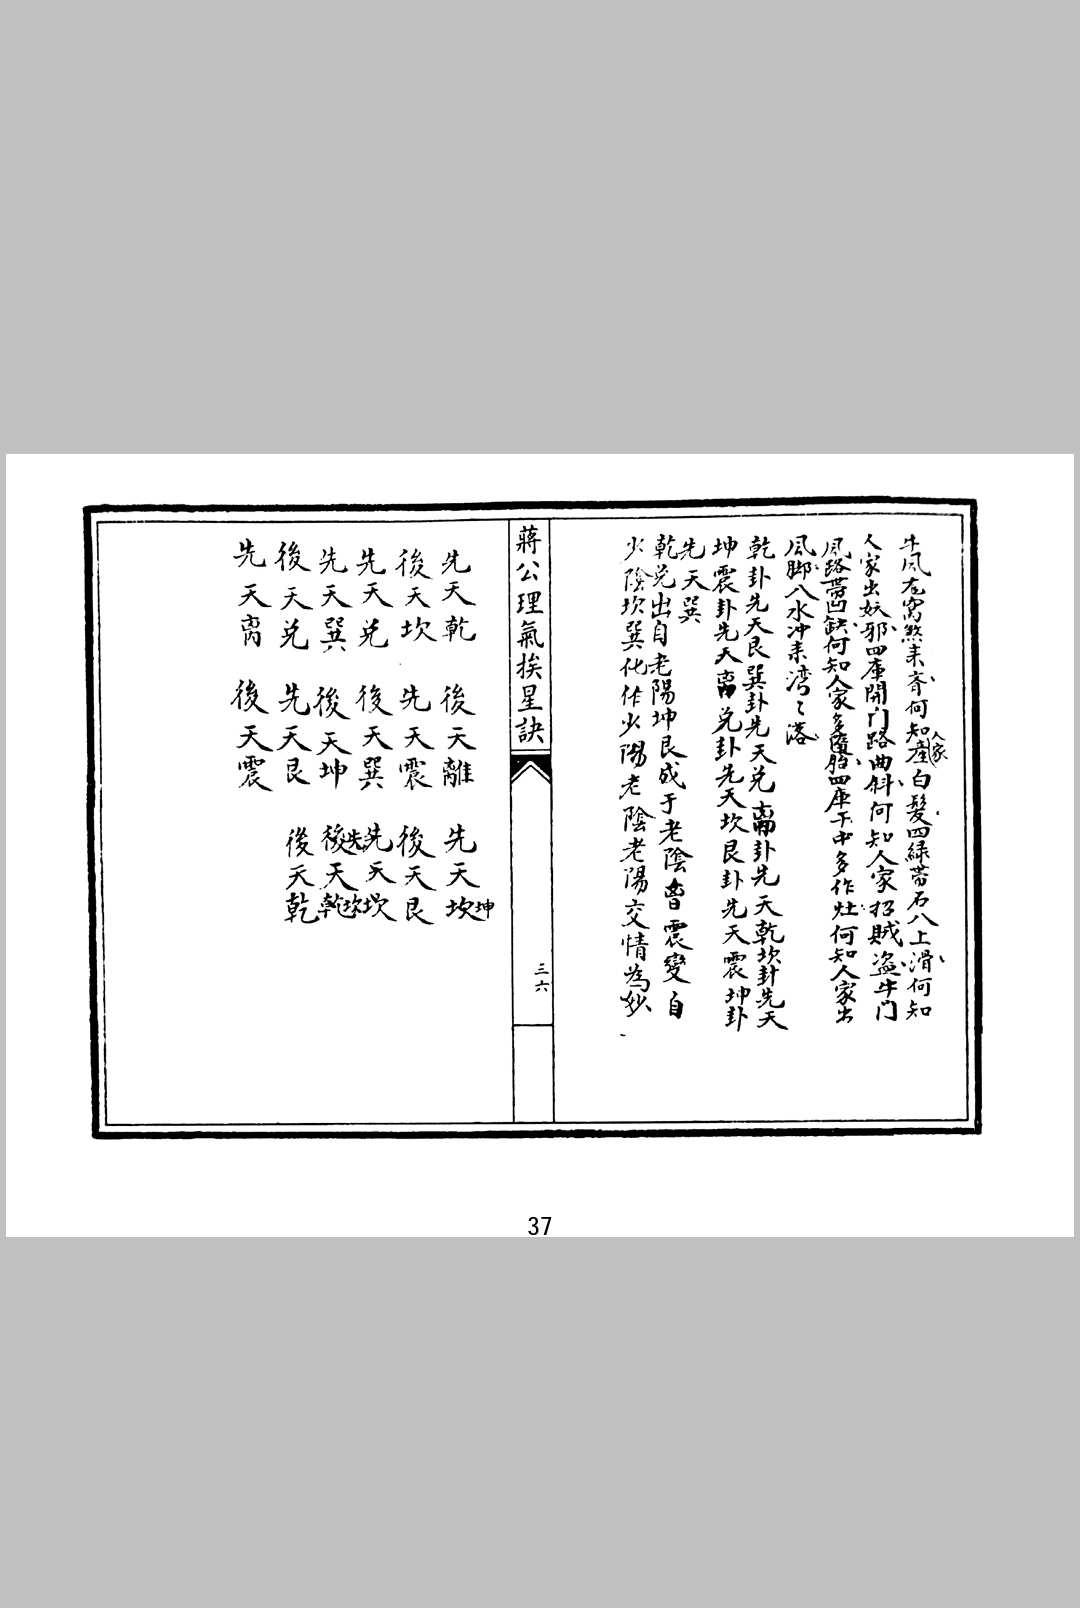 牛風左窩煞来斉何知人家產白髮四緑帯石八上滑何知
人家出妖邪四庫開门路曲斜何知人家招賊盗牛门
風路帯凹缺何知人家多四庫下中多作灶何知人家出
風脚八水冲来湾々落
乾卦先天艮巽卦先天兑离卦先天乾坎卦先天
坤震卦先天离兑卦先天坎艮卦先天震坤卦
先天巽
乾兑出自老陽坤艮成于老陰震變自
少陰坎巽化作少陽老陰老陽交情為妙
蔣公理氣挨星訣
三六
先天乾 後天離 先天坎坤
後天坎 先天震 後天艮
先天兑 後天巽 先天坎
先天巽 後天坤 後天乾
後天兑 先天艮 後天乾
先天离 後天震
37